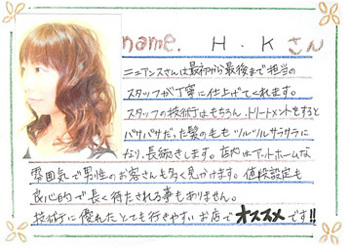 name. H.Kさん
ニュアンスさんは最初から最後まで担当の
スタッフが丁寧に仕上げてくれます。
スタッフの技術はもちろん、トリートメントをすると
パサパサだった髪の毛もツルツルサラサラに
なり、長続きします。店内はアットホームな
雰囲気で男性のお客さんも多く見かけます。値段設定も
良心的で長く待たされる事もありません。
技術に優れたとても行きやすいお店でオススメです!!